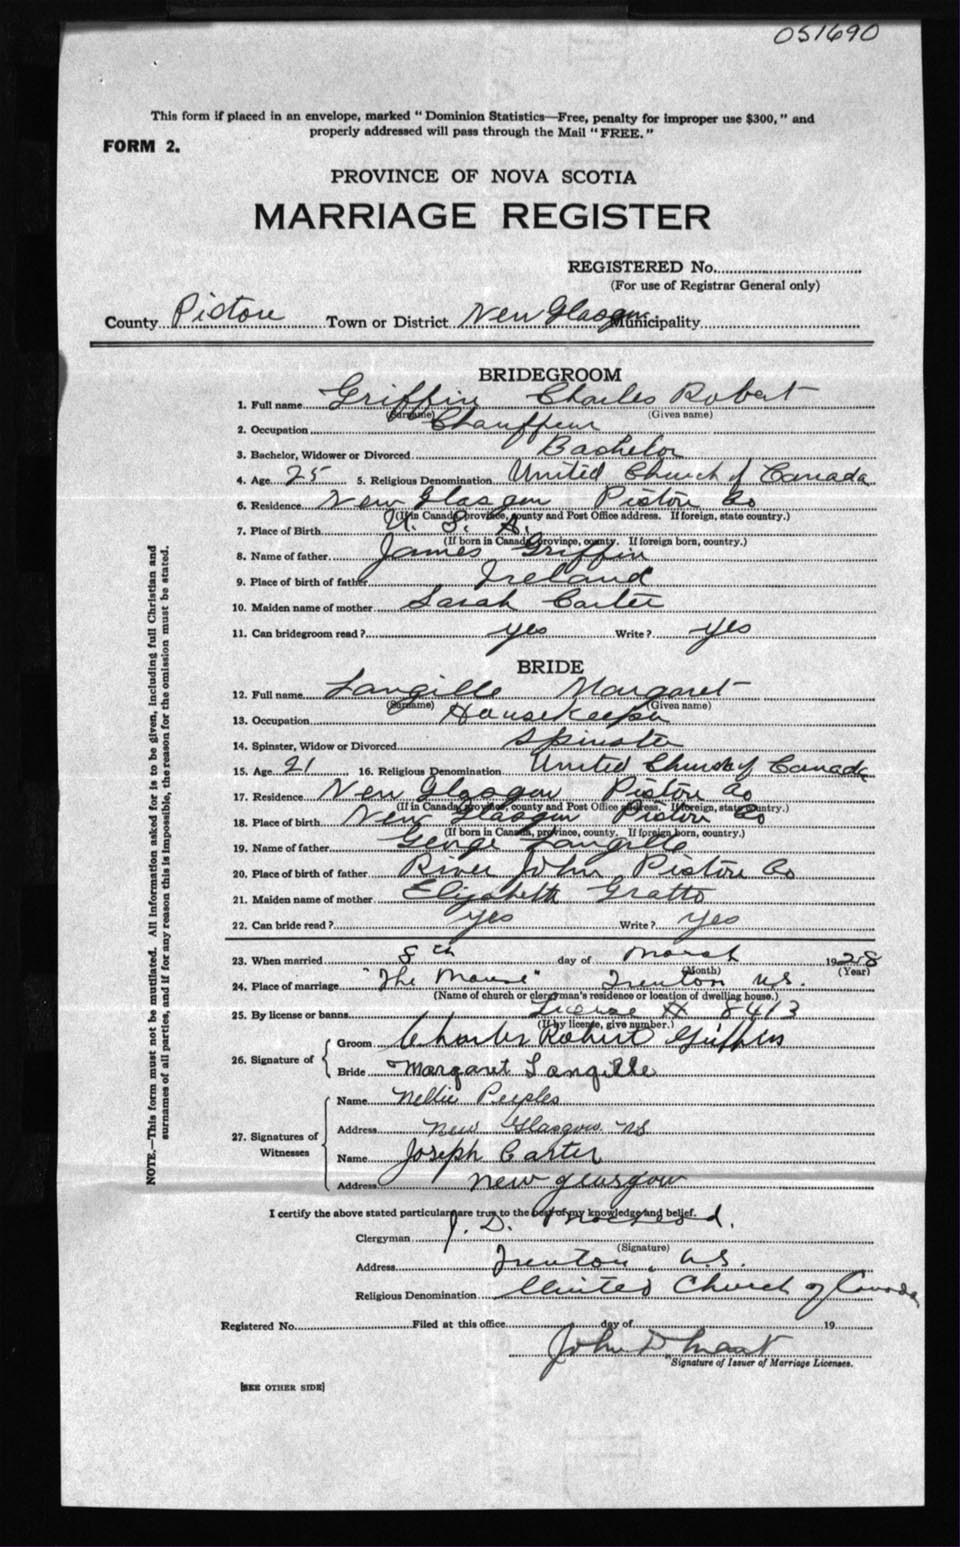 051690
This form if placed in an envelope, marked "Dominion Statistics—Free, penalty for improper use $300," and
properly addressed will pass through the Mail "FREE."
FORM 2.
PROVINCE OF NOVA SCOTIA
MARRIAGE REGISTER
REGISTERED No.
(For use of Registrar General only)
County Pictou Town or District New Glasgow Municipality
BRIDEGROOM
1. Full name Griffin Charles Robert
(Surname) (Given name)
2. Occupation Chauffeur
3. Bachelor, Widower or Divorced Bachelor
4. Age 25 5. Religious Denomination United Church of Canada
6. Residence New Glasgow Pictou Co
(If in Canada, province, county and Post Office address. If foreign, state country.)
7. Place of Birth U. S. A.
(If born in Canada, province, county. If foreign born, country.)
8. Name of father James Griffin
9. Place of birth of father Ireland
10. Maiden name of mother Sarah Carter
11. Can bridegroom read? yes Write? yes
BRIDE
12. Full name Langille Margaret
(Surname) (Given name)
13. Occupation Housekeeper
14. Spinster, Widow or Divorced Spinster
15. Age 21 16. Religious Denomination United Church of Canada
17. Residence New Glasgow Pictou Co
(If in Canada, province, county and Post Office address. If foreign, state country.)
18. Place of birth New Glasgow Pictou Co
(If born in Canada, province, county. If foreign born, country.)
19. Name of father George Langille
20. Place of birth of father River John Pictou Co
21. Maiden name of mother Elizabeth Gratto
22. Can bride read? yes Write? yes
23. When married 8th day of March 1928
(Month) (Year)
24. Place of marriage "The Manse" Trenton N.S.
(Name of church or clergyman's residence or location of dwelling house.)
25. By license or banns License # 8413
(If by license, give number.)
26. Signature of
Groom Charles Robert Griffin
Bride Margaret Langille
27. Signatures of Witnesses
Name Nellie Peeples
Address New Glasgow NS
Name Joseph Carter
Address New Glasgow
I certify the above stated particulars are true to the best of my knowledge and belief.
Clergyman J. D.
(Signature)
Address Trenton, N.S.
Religious Denomination United Church of Canada
Registered No. Filed at this office day of 19
John D
Signature of Issuer of Marriage Licenses.
[SEE OTHER SIDE]
NOTE.—This form must not be mutilated. All information asked for is to be given, including full Christian and
surnames of all parties, and if for any reason this is impossible, the reason for the omission must be stated.